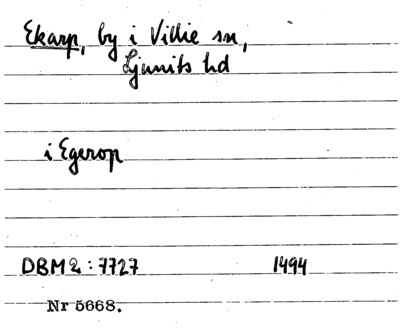 Ekarp, by i Villie sn,
Ljunits hd
i Egerop
DBM 2:7727 1494
Nr 5668.